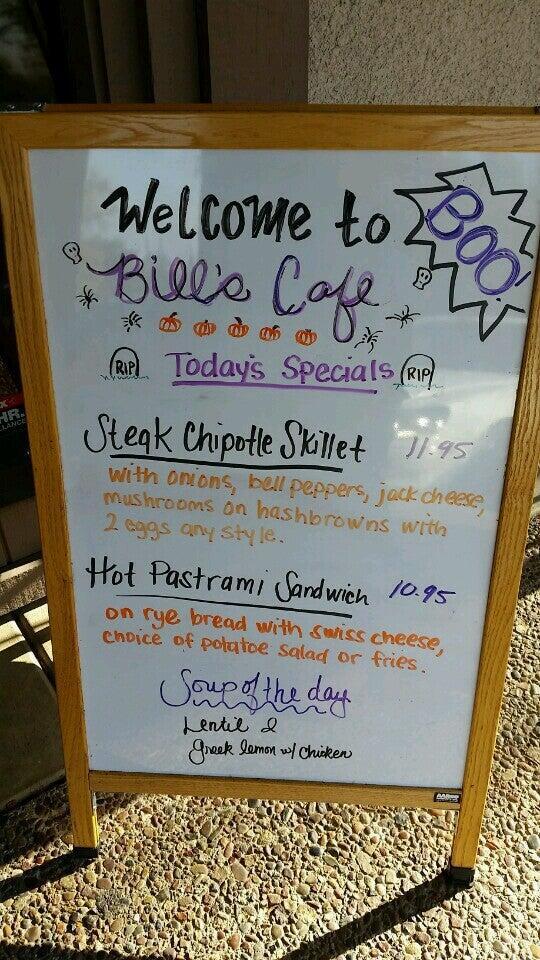 Welcome to
BOO!
Bill's Cafe
RIP
Today's Specials
RIP
Steak Chipotle Skillet 11.95
with onions, bell peppers, jack cheese,
mushrooms on hashbrowns with
2 eggs any style.
Hot Pastrami Sandwich 10.95
on rye bread with swiss cheese,
choice of potatoe salad or fries.
Soup of the day
Lentil &
greek lemon w/ chicken